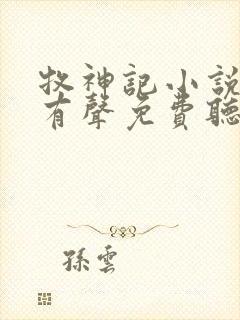 牧神記小說
有聲免費聽
孫雲